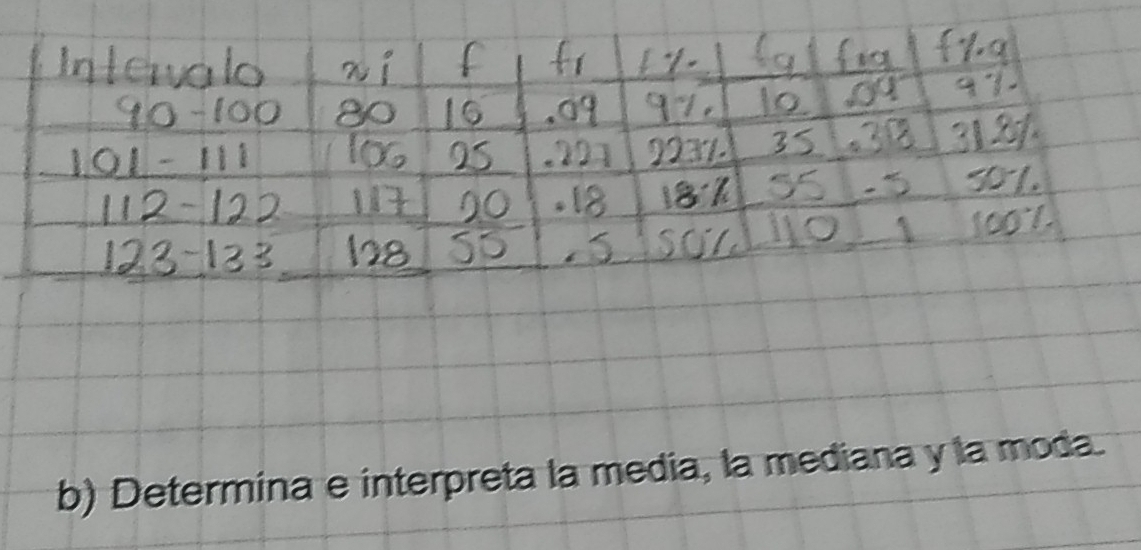 Intervalo xi f fr f% fa fra f%a
90-100 80 10 .09 9% 10 .09 9%
101-111 106 25 .227 22.7% 35 .318 31.8%
112-122 117 20 .18 18% 55 .5 50%
123-133 128 55 .5 50% 110 1 100%
b) Determina e interpreta la media, la mediana y la moda.